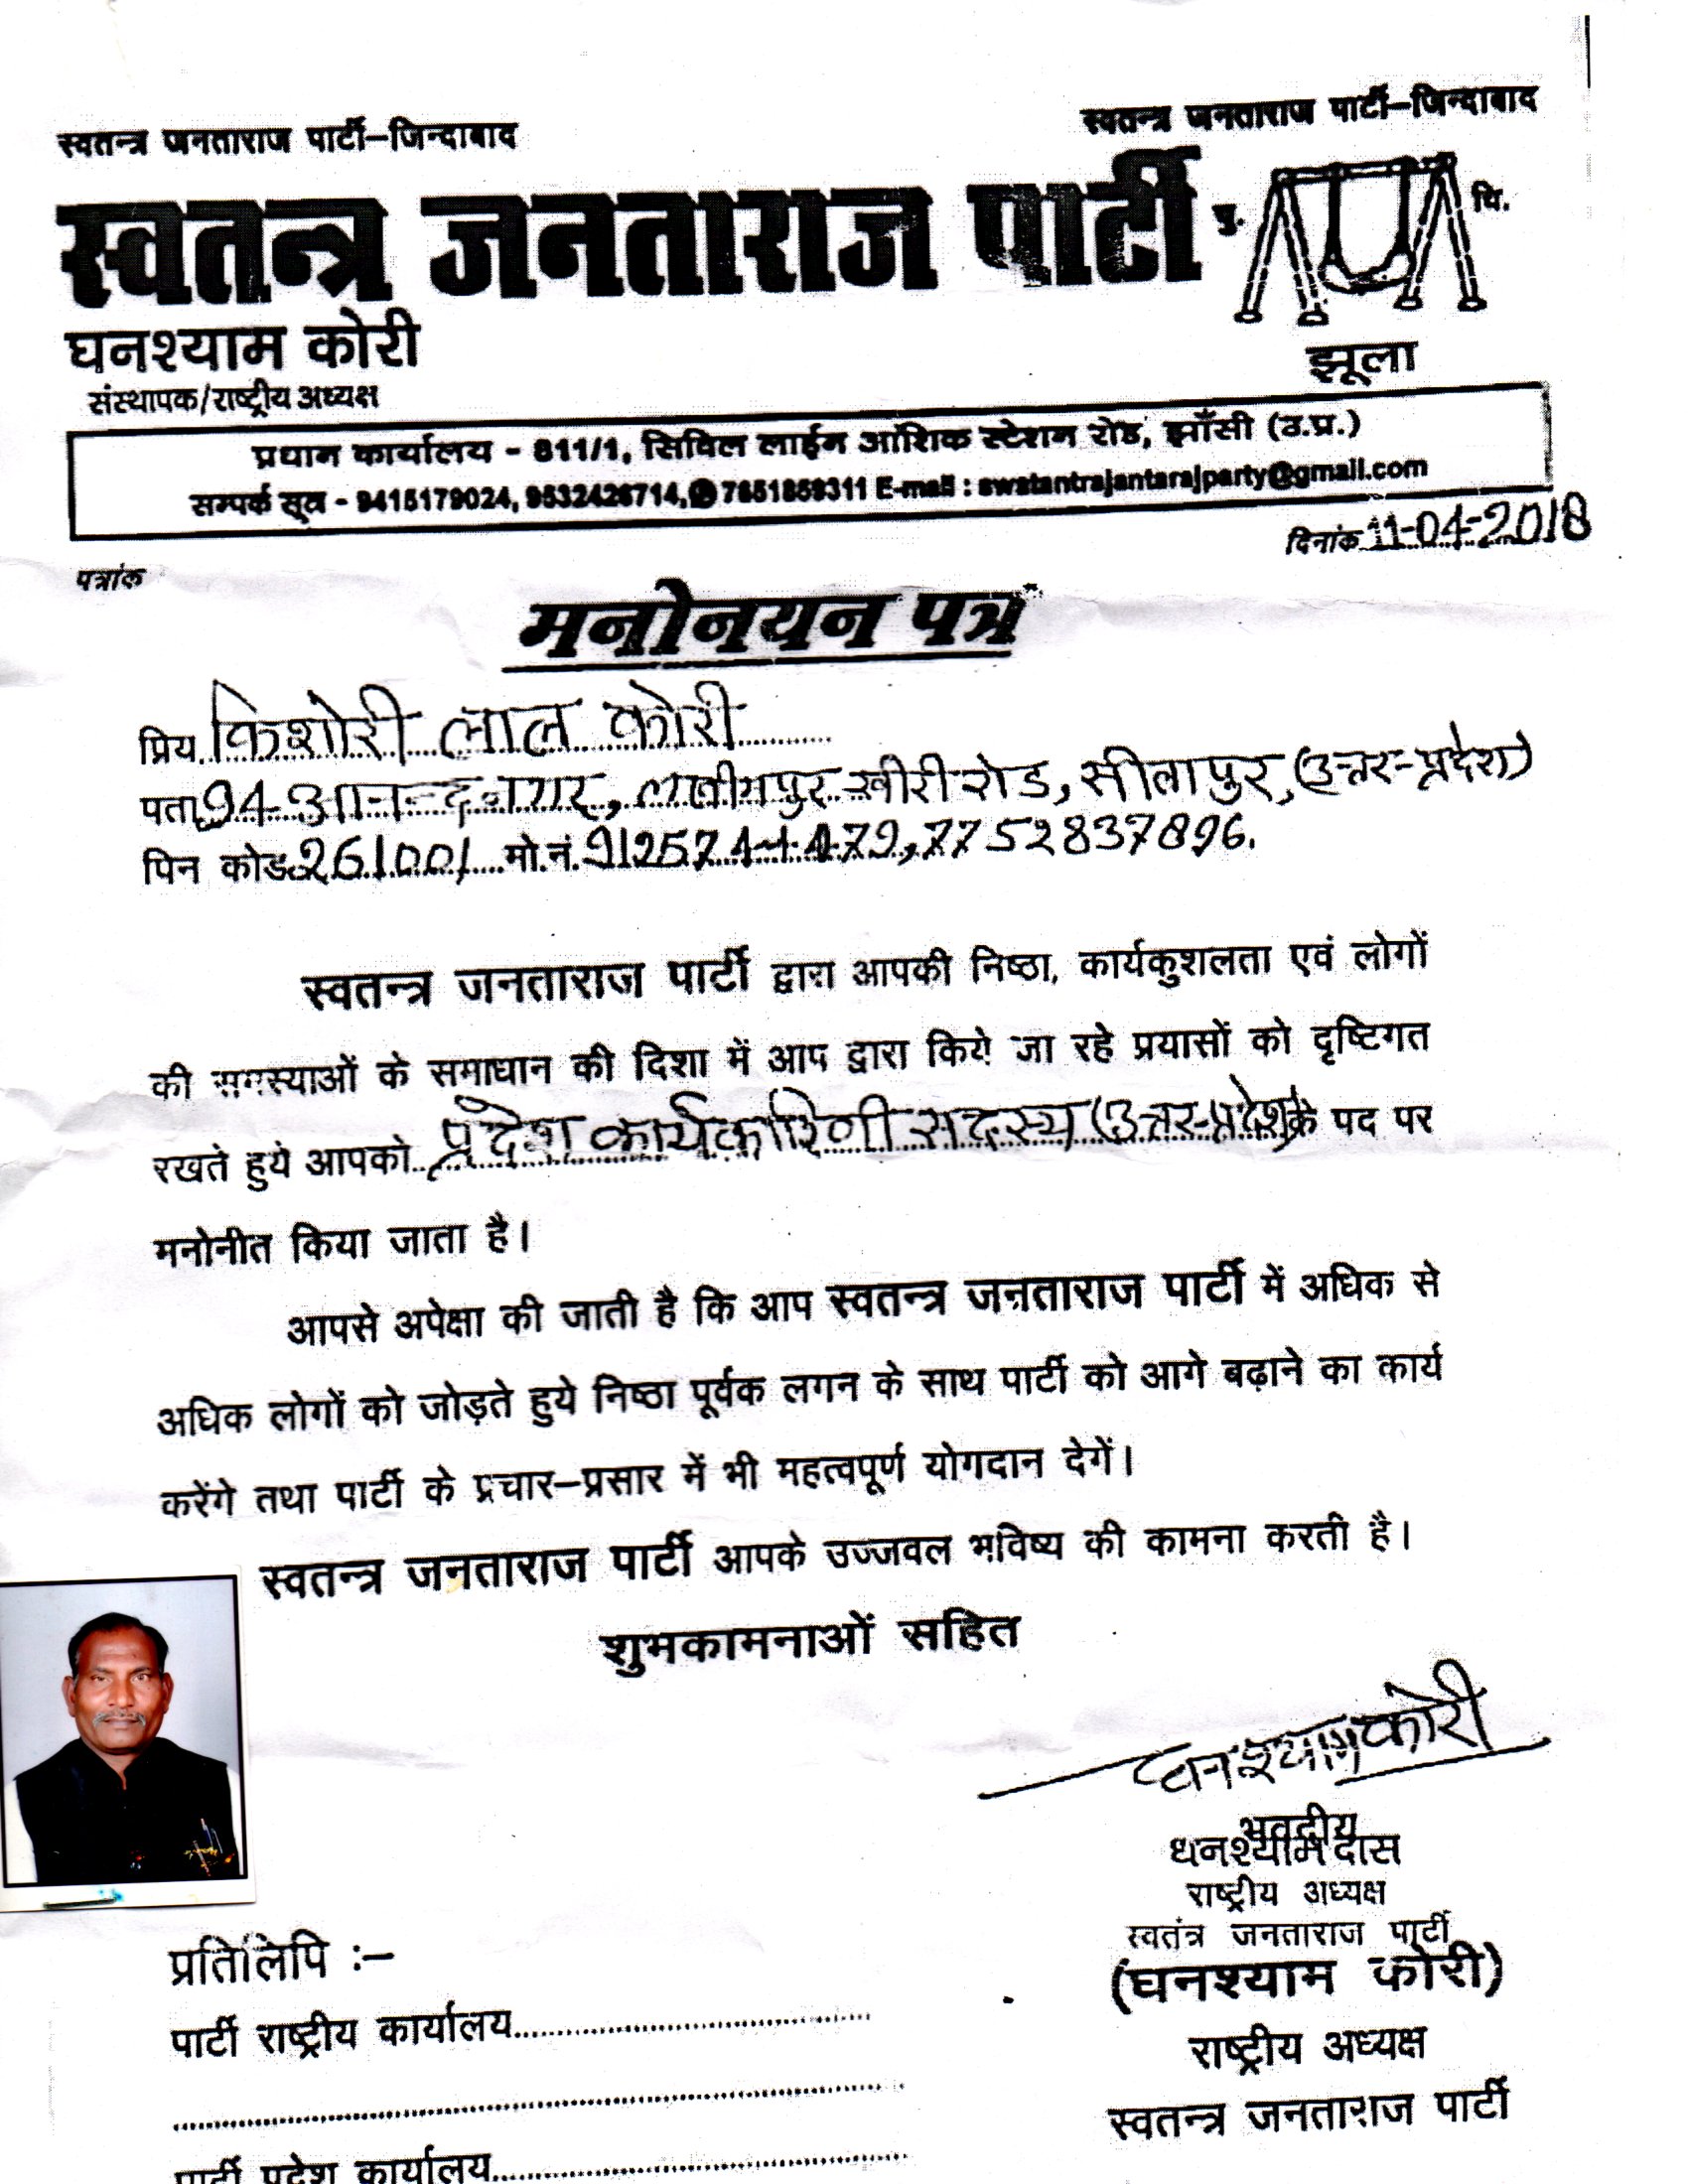 स्वतन्त्र जनताराज पार्टी–जिन्दाबाद
स्वतन्त्र जनताराज पार्टी–जिन्दाबाद
स्वतन्त्र जनताराज पार्टी
चु. चि.
झूला
घनश्याम कोरी
संस्थापक/राष्ट्रीय अध्यक्ष
प्रधान कार्यालय - 811/1, सिविल लाईन आंशिक स्टेशन रोड, झाँसी (उ.प्र.)
सम्पर्क सूत्र - 9415179024, 9532426714, 7651859311 E-mail : swatantrajantarajparty@gmail.com
दिनांक 11-04-2018
पत्रांक
मनोनयन पत्र
प्रिय किशोरी लाल कोरी
पता 94-आनन्द नगर, लखीमपुर खीरी रोड, सीतापुर, (उत्तर-प्रदेश)
पिन कोड 261001 मो.नं. 7752837896.
स्वतन्त्र जनताराज पार्टी द्वारा आपकी निष्ठा, कार्यकुशलता एवं लोगों
की समस्याओं के समाधान की दिशा में आप द्वारा किये जा रहे प्रयासों को दृष्टिगत
रखते हुये आपको प्रदेश कार्यकारिणी सदस्य (उत्तर-प्रदेश) के पद पर
मनोनीत किया जाता है।
आपसे अपेक्षा की जाती है कि आप स्वतन्त्र जनताराज पार्टी में अधिक से
अधिक लोगों को जोड़ते हुये निष्ठा पूर्वक लगन के साथ पार्टी को आगे बढ़ाने का कार्य
करेंगे तथा पार्टी के प्रचार–प्रसार में भी महत्वपूर्ण योगदान देगें।
स्वतन्त्र जनताराज पार्टी आपके उज्जवल भविष्य की कामना करती है।
शुभकामनाओं सहित
घनश्याम कोरी
भवदीय
धनश्याम दास
राष्ट्रीय अध्यक्ष
स्वतंत्र जनताराज पार्टी
(घनश्याम कोरी)
राष्ट्रीय अध्यक्ष
स्वतन्त्र जनताराज पार्टी
प्रतिलिपि :–
पार्टी राष्ट्रीय कार्यालय
पार्टी प्रदेश कार्यालय